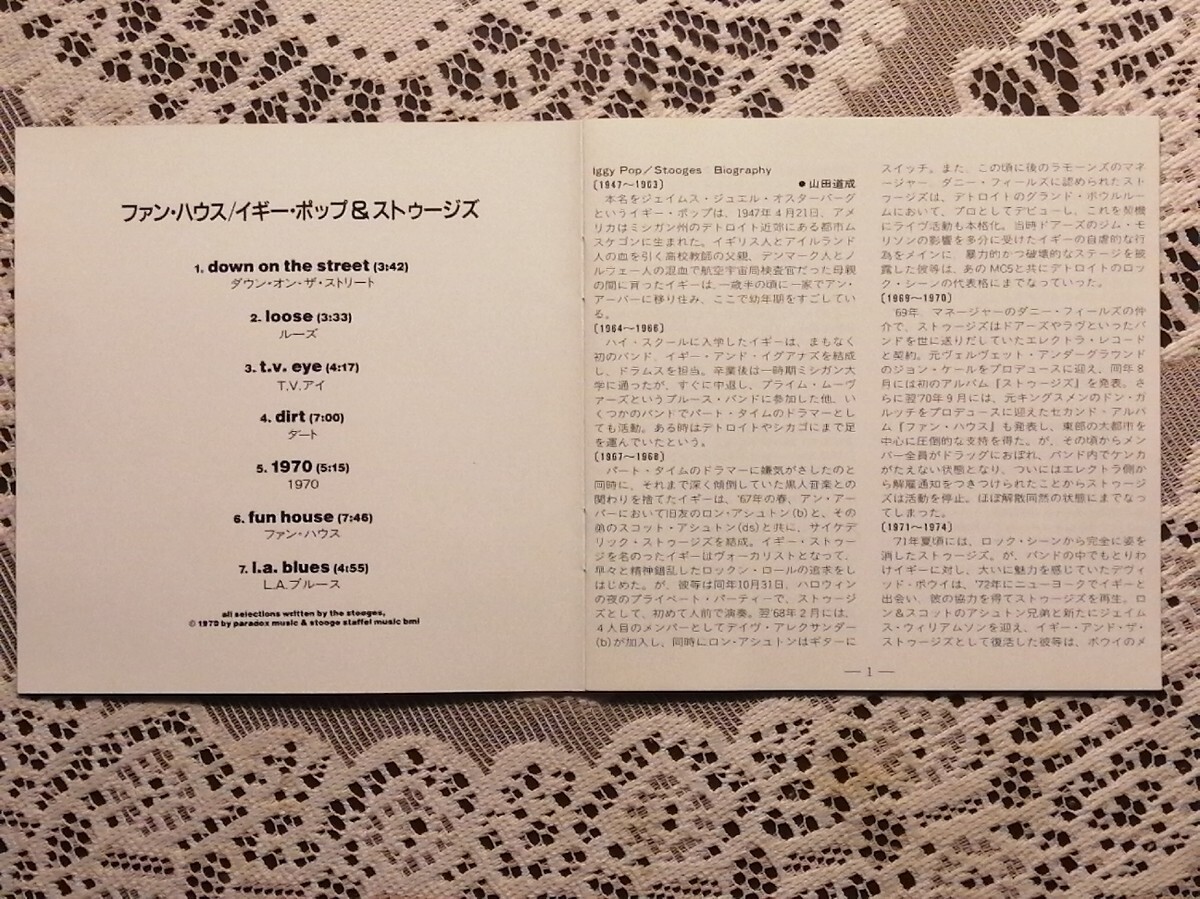 ファン・ハウス/イギー・ポップ&ストゥージズ
1. down on the street (3:42)
ダウン・オン・ザ・ストリート
2. loose (3:33)
ルーズ
3. t.v. eye (4:17)
T.V.アイ
4. dirt (7:00)
ダート
5. 1970 (5:15)
1970
6. fun house (7:46)
ファン・ハウス
7. l.a. blues (4:55)
L.A.ブルース
all selections written by the stooges,
© 1970 by paradox music & stooge staffel music bmi
Iggy Pop/Stooges Biography
〔1947～1963〕 ●山田道成
本名をジェイムス・ジュエル・オスターバーグ
というイギー・ポップは、1947年4月21日、アメ
リカはミシガン州のデトロイト近郊にある都市ム
スケゴンに生まれた。イギリス人とアイルランド
人の血を引く高校教師の父親、デンマーク人とノ
ルウェー人の混血で航空宇宙局検査官だった母親
の間に育ったイギーは、一歳半の頃に一家でアン・
アーバーに移り住み、ここで幼年期をすごしてい
る。
〔1964～1966〕
ハイ・スクールに入学したイギーは、まもなく
初のバンド、イギー・アンド・イグアナズを結成
し、ドラムスを担当。卒業後は一時期ミシガン大
学に通ったが、すぐに中退し、プライム・ムーヴ
アーズというブルース・バンドに参加した他、い
くつかのバンドでパート・タイムのドラマーとし
ても活動。ある時はデトロイトやシカゴにまで足
を運んでいたという。
〔1967～1968〕
パート・タイムのドラマーに嫌気がさしたのと
同時に、それまで深く傾倒していた黒人音楽との
関わりを捨てたイギーは、'67年の春、アン・アー
バーにおいて旧友のロン・アシュトン(b)と、その
弟のスコット・アシュトン(ds)と共に、サイケデ
リック・ストゥージズを結成。イギー・ストゥー
ジを名のったイギーはヴォーカリストとなって、
早々と精神錯乱したロックン・ロールの追求をし
はじめた。が、彼等は同年10月31日、ハロウィン
の夜のプライベート・パーティーで、ストゥージ
ズとして、初めて人前で演奏。翌'68年2月には、
4人目のメンバーとしてデイヴ・アレクサンダー
(b)が加入し、同時にロン・アシュトンはギターに
スイッチ。また、この頃に後のラモーンズのマネ
ージャー、ダニー・フィールズに認められたスト
ゥージズは、デトロイトのグランド・ボウルルー
ムにおいて、プロとしてデビューし、これを契機
にライヴ活動も本格化。当時ドアーズのジム・モ
リソンの影響を多分に受けたイギーの自虐的な行
為をメインに、暴力的かつ破壊的なステージを披
露した彼等は、あのMC5と共にデトロイトのロッ
ク・シーンの代表格にまでなっていった。
〔1969～1970〕
'69年、マネージャーのダニー・フィールズの仲
介で、ストゥージズはドアーズやラヴといったバ
ンドを世に送りだしていたエレクトラ・レコード
と契約。元ヴェルヴェット・アンダーグラウンド
のジョン・ケールをプロデュースに迎え、同年8
月には初のアルバム『ストゥージズ』を発表。さ
らに翌'70年9月には、元キングスメンのドン・ガ
ルッチをプロデュースに迎えたセカンド・アルバ
ム『ファン・ハウス』も発表し、東部の大都市を
中心に圧倒的な支持を得た。が、その頃からメン
バー全員がドラッグにおぼれ、バンド内でケンカ
がたえない状態となり、ついにはエレクトラ側か
ら解雇通知をつきつけられたことからストゥージ
ズは活動を停止。ほぼ解散同然の状態にまでなっ
てしまった。
〔1971～1974〕
'71年夏頃には、ロック・シーンから完全に姿を
消したストゥージズ。が、バンドの中でもとりわ
けイギーに対し、大いに魅力を感じていたデヴィ
ッド・ボウイは、'72年にニューヨークでイギーと
出会い、彼の協力を得てストゥージズを再生。ロ
ン&スコットのアシュトン兄弟と新たにジェイム
ス・ウィリアムソンを迎え、イギー・アンド・ザ・
ストゥージズとして復活した彼等は、ボウイのメ
— 1 —